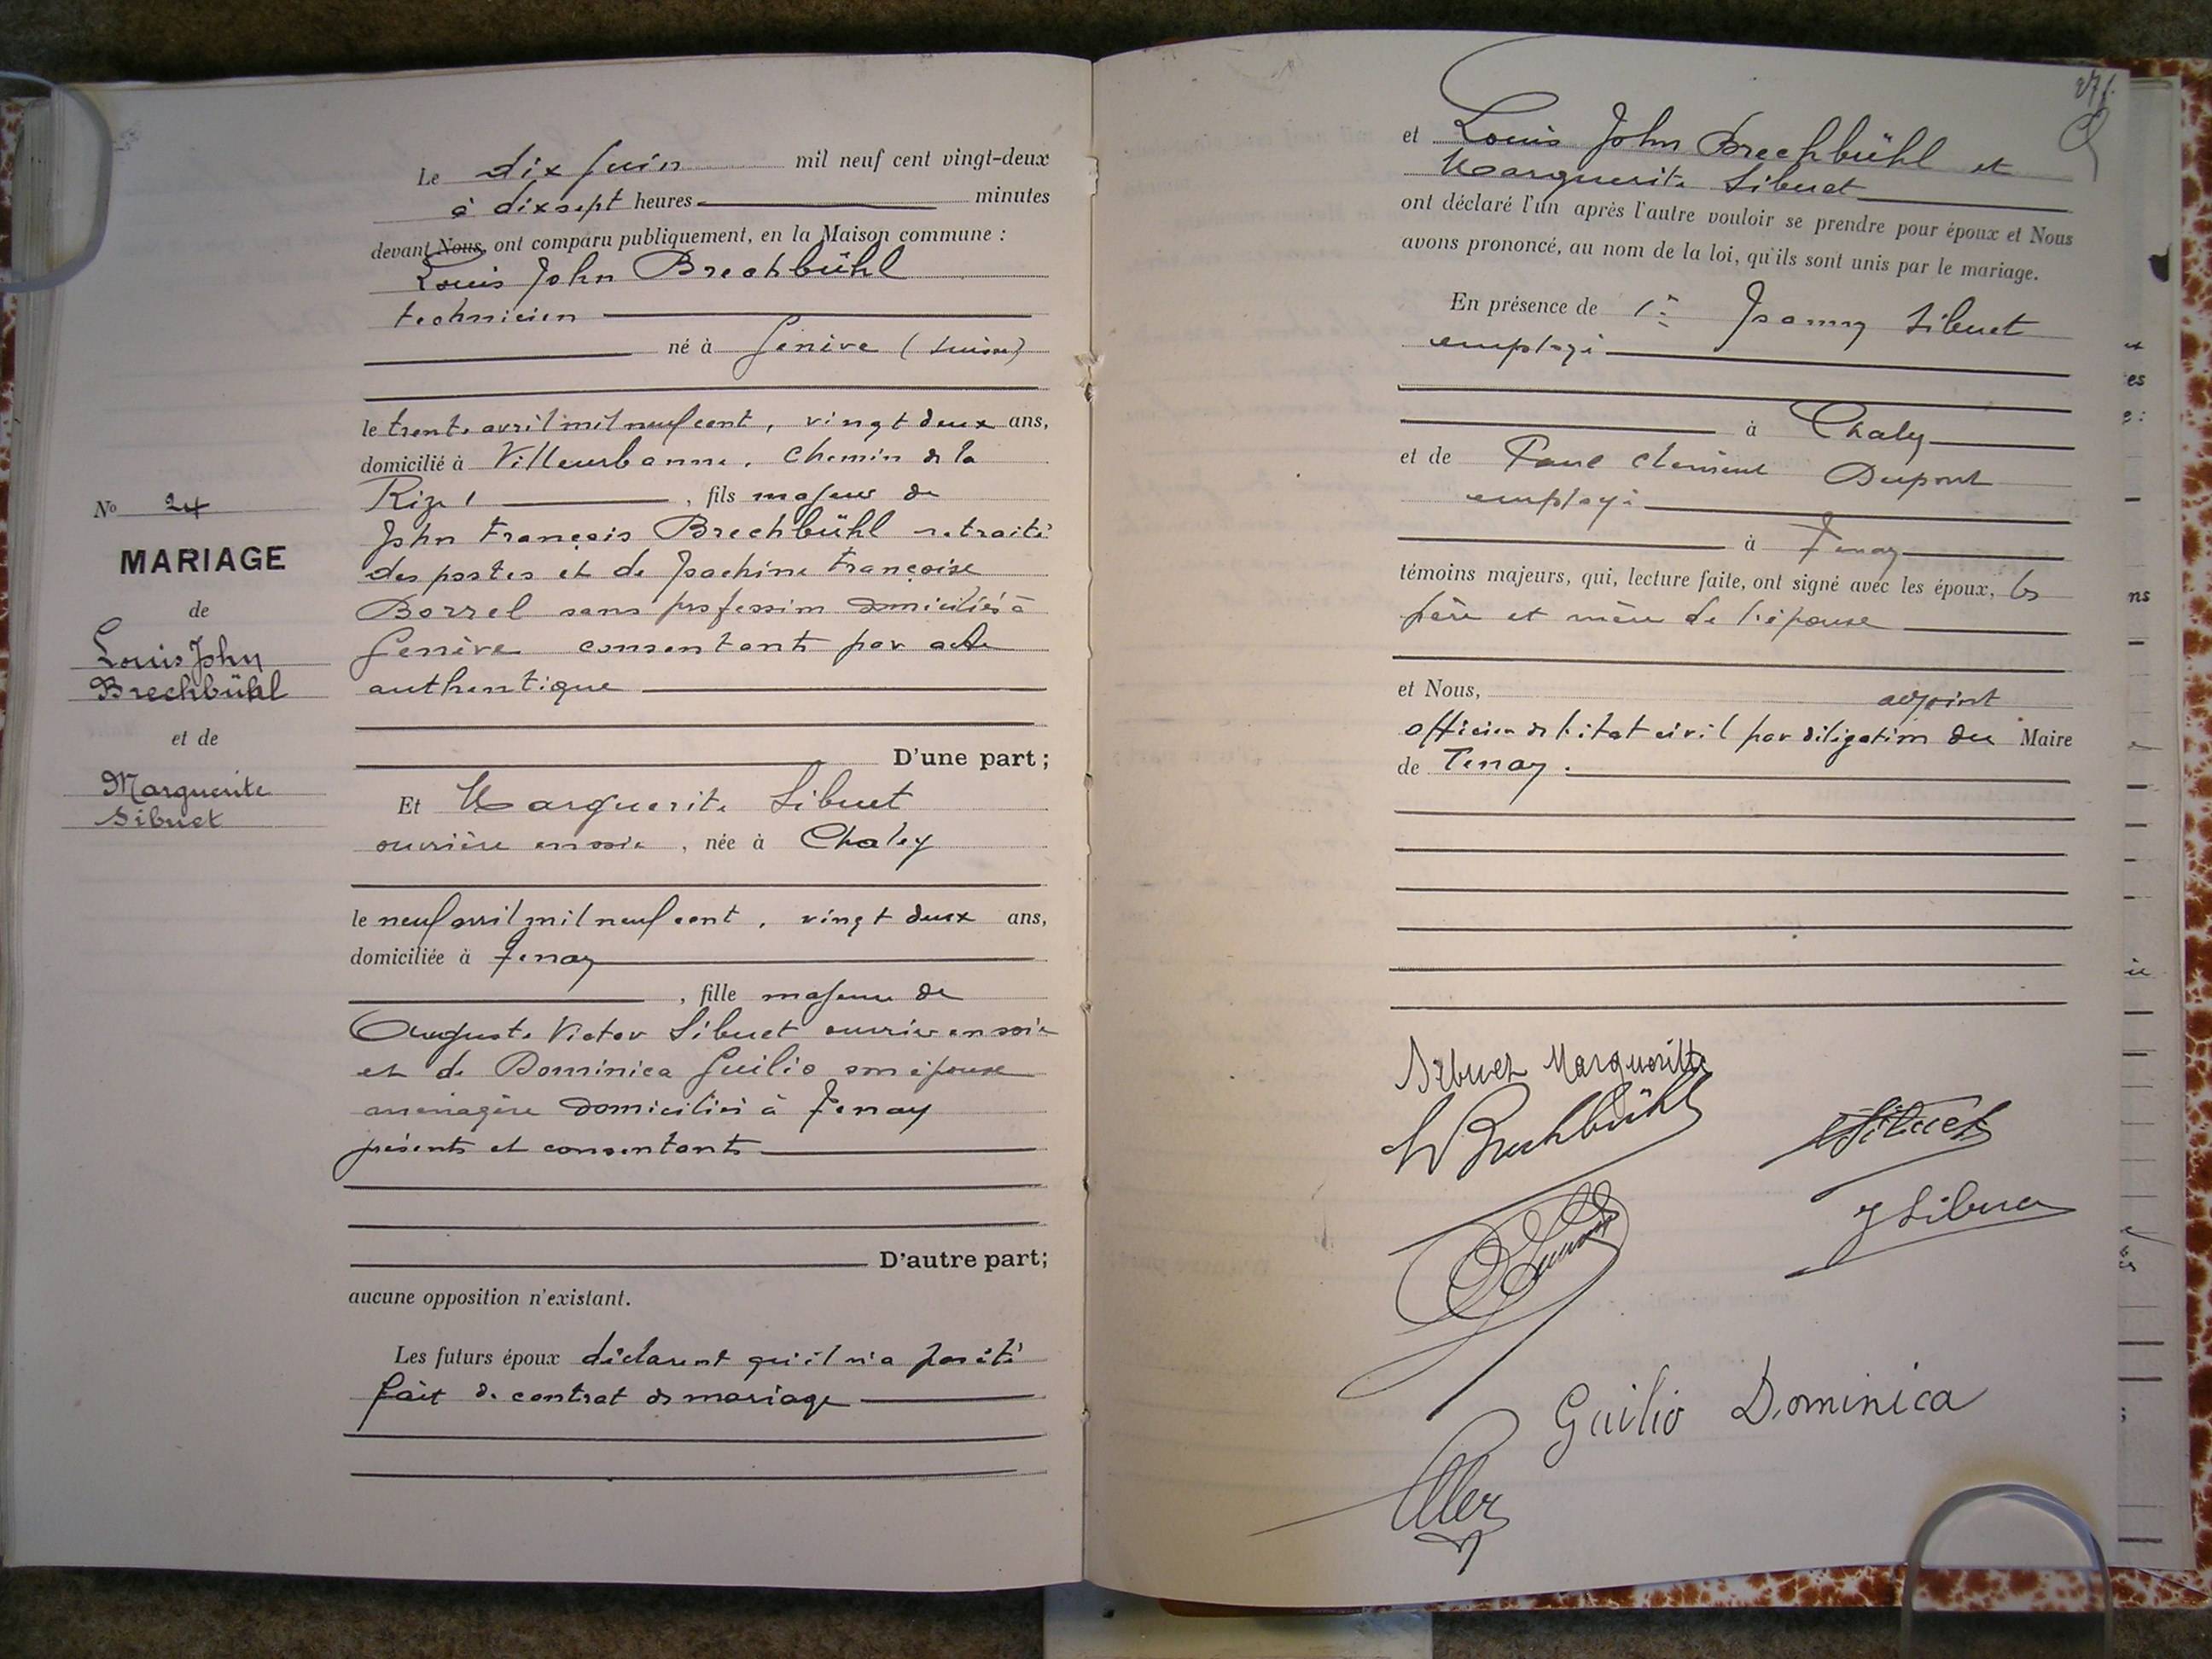 Le dix juin mil neuf cent vingt-deux
à dixsept heures minutes
devant Nous, ont comparu publiquement, en la Maison commune :
Louis John Brechbühl
technicien
né à Genève (Suisse)
le trente avril mil neuf cent, vingt deux ans,
domicilié à Villeurbanne, Chemin de la
Rize 1, fils majeur de
John François Brechbühl retraité
des postes et de Joachine Françoise
Borrel sans profession domiciliés à
Genève consentants par acte
authentique
D'une part ;
No 24
MARIAGE
de
Louis John
Brechbühl
et de
Marguerite
Sibuet
Et Marguerite Sibuet
ouvrière en soie, née à Chaley
le neuf avril mil neuf cent, vingt deux ans,
domiciliée à Tenay
, fille majeure de
Auguste Victor Sibuet ouvrier en soie
et de Dominica Guilio son épouse
ménagère domiciliés à Tenay
présents et consentants
D'autre part;
aucune opposition n'existant.
Les futurs époux déclarent qu'il n'a pas été
fait de contrat de mariage
et Louis John Brechbühl et
Marguerite Sibuet
ont déclaré l'un après l'autre vouloir se prendre pour époux et Nous
avons prononcé, au nom de la loi, qu'ils sont unis par le mariage.
En présence de Joanny Sibuet
employé
à Chaley
et de Paul Clément Dupont
employé
à Tenay
témoins majeurs, qui, lecture faite, ont signé avec les époux, les
père et mère de l'épouse
et Nous, adjoint
officier de l'état civil par délégation du Maire
de Tenay.
Sibuet Margueritte
Brechbühl
Sibuet
J Sibuet
Guilio Dominica